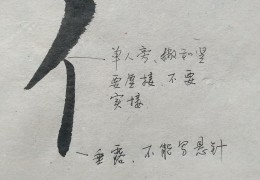 亻
单人旁、撇和竖
要虚接 不要
实接
垂露、不能写悬针